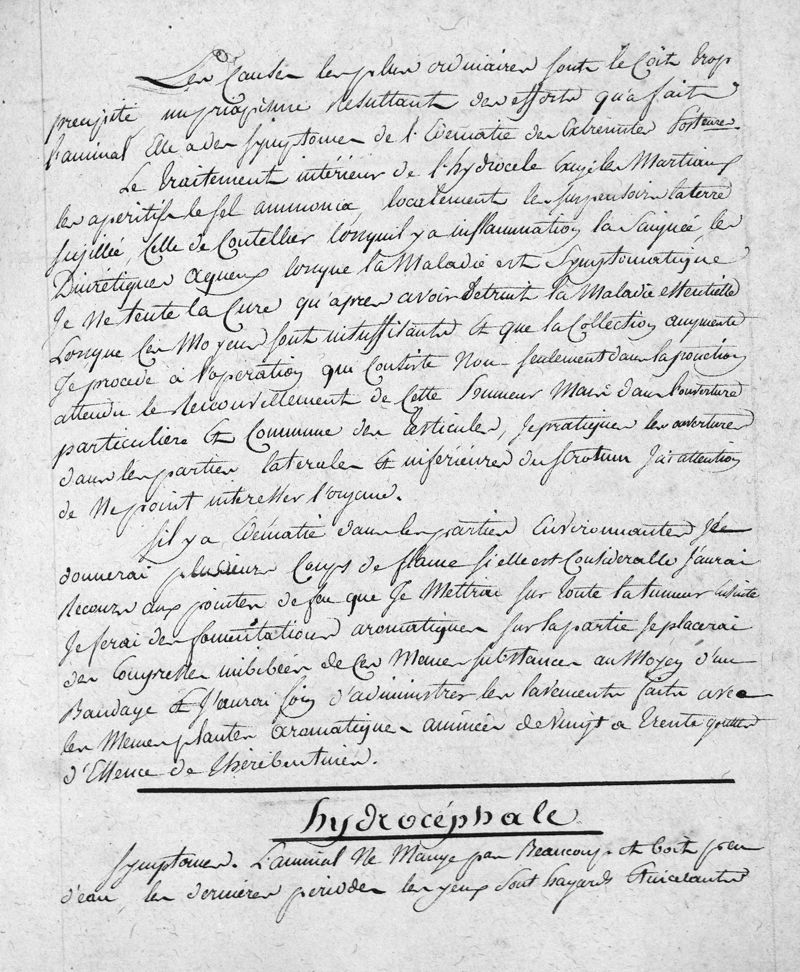 Les Causes les plus ordinaires sont le Coit trop
precipité, un priapisme resultant des efforts qu'a fait
l'animal Elle a des Symptomes de l'Edematie des Extremites Posterre.
Le traitement intérieur de l'hydrocele Exige les Martiaux
les aperitifs le sel ammoniac, localement le suspensoir la terre
sigillée, Celle de Coutellier lorsquil y a inflammation la Saignée, les
Diurétiques aqueux lorsque la Maladie est Symptomatique
Je Ne tente la Cure qu'apres avoir Detruit la Maladie essentielle
Lorsque Ces Moyens sont insuffisants et que la Collection augmente
Je procede à l'operation qui Consiste Non-seulement dans la ponction
attendu le Renouvellement de Cette humeur Mais dans l'ouverture
particuliere et Commune des Testicules, Je pratique les ouvertures
dans les parties laterales et inferieures du strotum J'ai attention
de Ne point interesser l'organe.
S'il y a Edématie dans les parties Environnantes Je
donnerai plusieurs Coups de flame si elle est Considerable J'aurai
Recours aux pointes de feu que Je Mettrai sur toute la tumeur Ensuite
Je ferai des fomentations aromatiques sur la partie Je placerai
des Compresses imbibées de Ces Memes substances au Moyen d'un
Bandage et J'aurai soin d'administrer les lavements faits avec
les Memes plantes aromatiques animées de vingt a trente gouttes
d'Essence de Thérébentines.
hydrocéphale
Symptomes. L'animal Ne Mange pas Beaucoup et boit peu
d'eau, les dernieres periodes les yeux sont hagards Etincelants